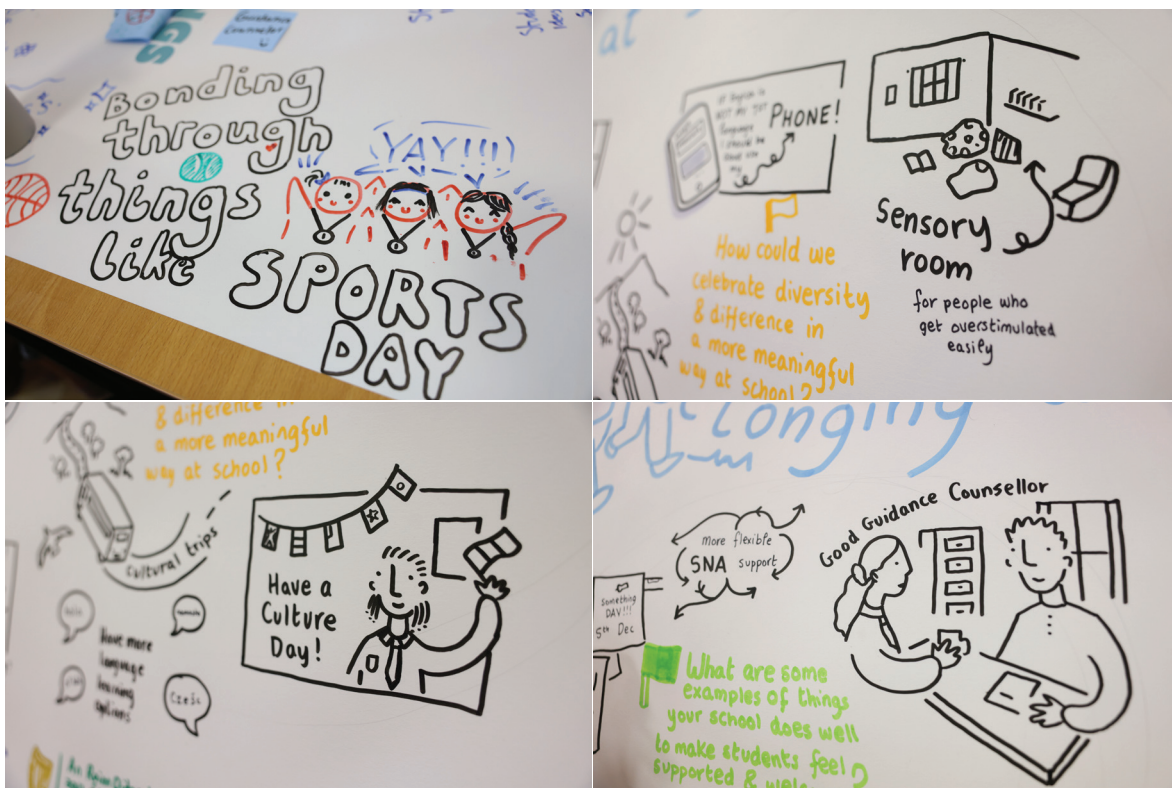 Guidance
Counsellor
Bonding
through
things
like
YAY!!!
SPORTS
DAY
at
If English is
NOT my 1st
language
I should be
PHONE!
How could we
celebrate diversity
& difference in
a more meaningful
way at school?
Sensory
room
for people who
get overstimulated
easily
& difference in
a more meaningful
way at school?
Cultural trips
Have more
language
learning
options
Cześć
Have a
Culture
Day!
longing
Good Guidance Counsellor
more flexible
SNA support
Something
DAY!!!
5th Dec
What are some
examples of things
your school does well
to make students feel
supported &